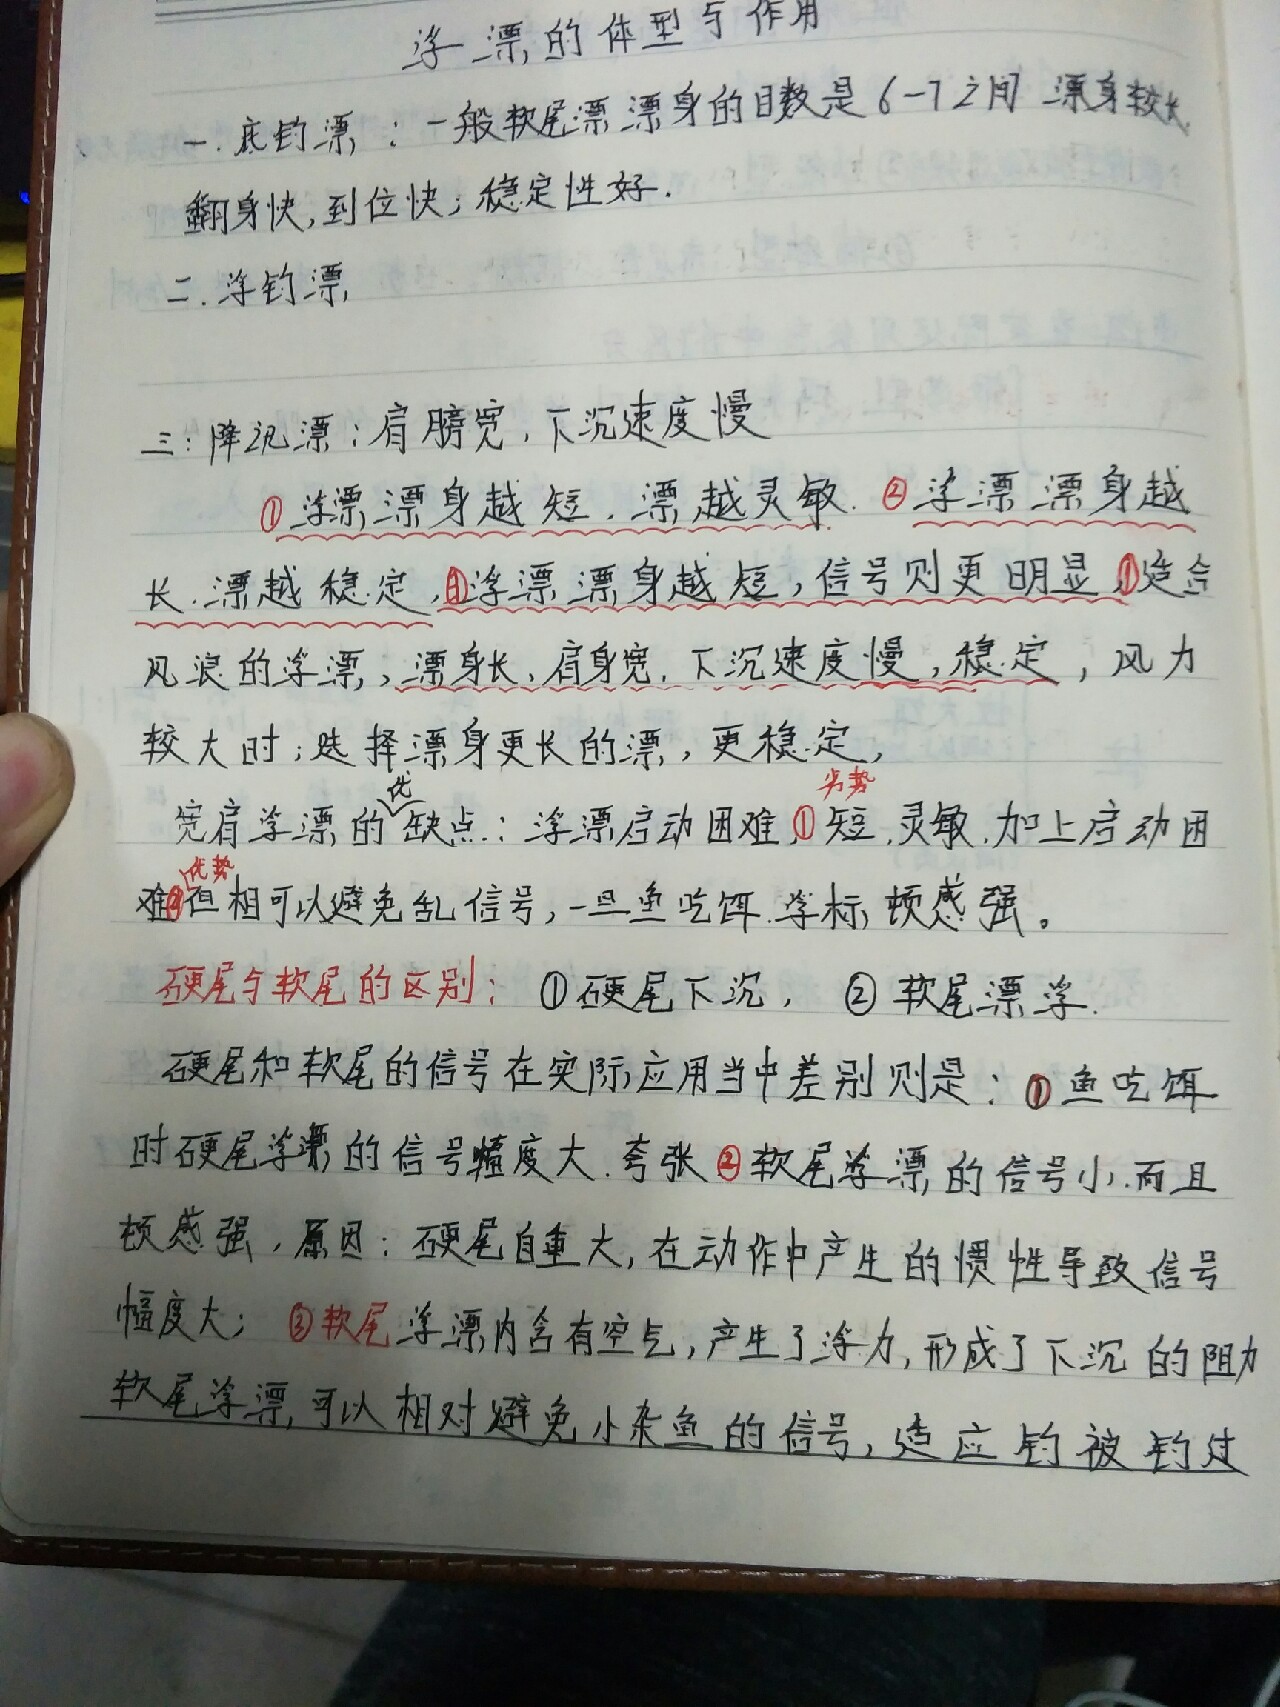 浮漂的体型与作用
一.底钓漂：一般软尾漂漂身的目数是6-7之间 漂身较长,
翻身快,到位快;稳定性好.
二.浮钓漂
三:降沉漂:肩膀宽,下沉速度慢
①浮漂漂身越短.漂越灵敏.②浮漂漂身越
长.漂越稳定.③浮漂漂身越短,信号则更明显①适合
风浪的浮漂,漂身长,肩身宽,下沉速度慢,稳定,风力
较大时;选择漂身更长的漂,更稳定,
优
劣势
宽肩浮漂的缺点:浮漂启动困难①短.灵敏.加上启动困
优势
难②但相可以避免乱信号,一旦鱼吃饵.浮标顿感强。
硬尾与软尾的区别:①硬尾下沉, ②软尾漂浮.
硬尾和软尾的信号在实际应用当中差别则是:①鱼吃饵
时硬尾浮漂的信号幅度大.夸张②软尾浮漂的信号小.而且
顿感强,原因:硬尾自重大,在动作中产生的惯性导致信号
幅度大;③软尾浮漂内含有空气,产生了浮力,形成了下沉的阻力
软尾浮漂可以相对避免小杂鱼的信号,适应钓被钓过